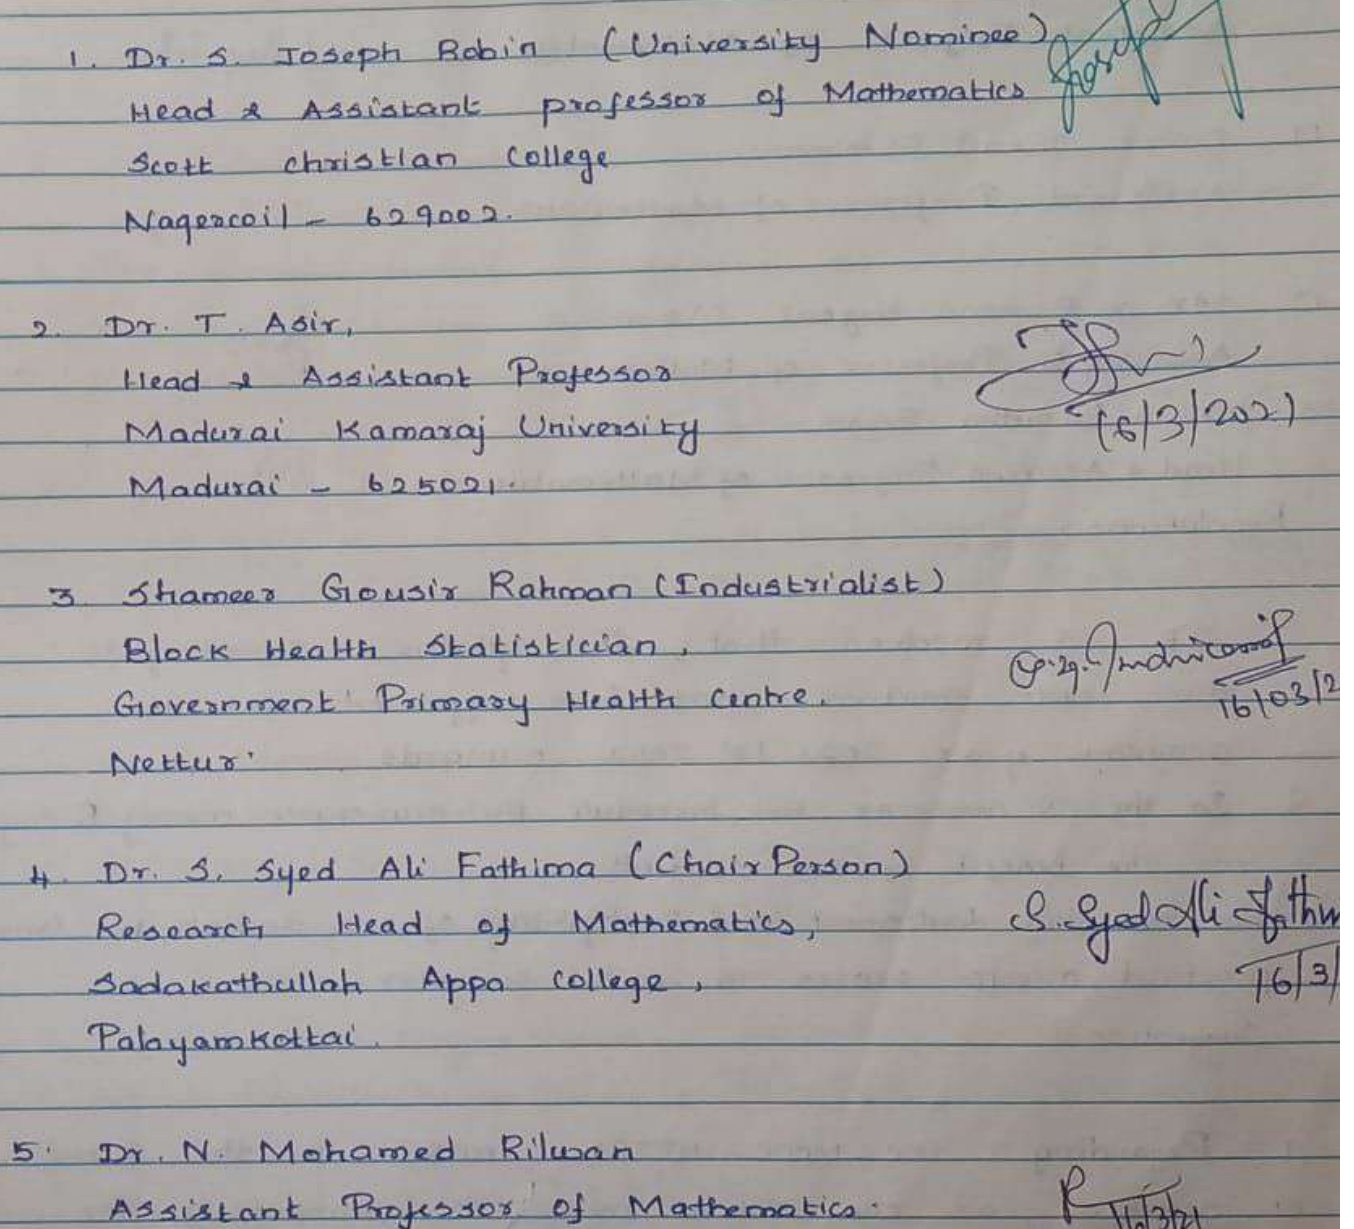 1. Dr. S. Joseph Robin (University Nominee)
Head & Assistant professor of Mathematics
Scott christian College
Nagercoil - 629002.
2. Dr. T. Asir,
Head & Assistant Professor
Madurai Kamaraj University
16/3/2021
Madurai - 625021.
3 Shameer Gousir Rahman (Industrialist)
Block Health Statistician,
Government Primary Health centre.
16/03/2
Nettur.
4. Dr. S. Syed Ali Fathima (ChairPerson)
Research Head of Mathematics,
S. Syed Ali Fathim
Sadakathullah Appa College,
16/3/
Palayamkottai.
5. Dr. N. Mohamed Rilwan
Assistant Professor of Mathematics.
16/3/21